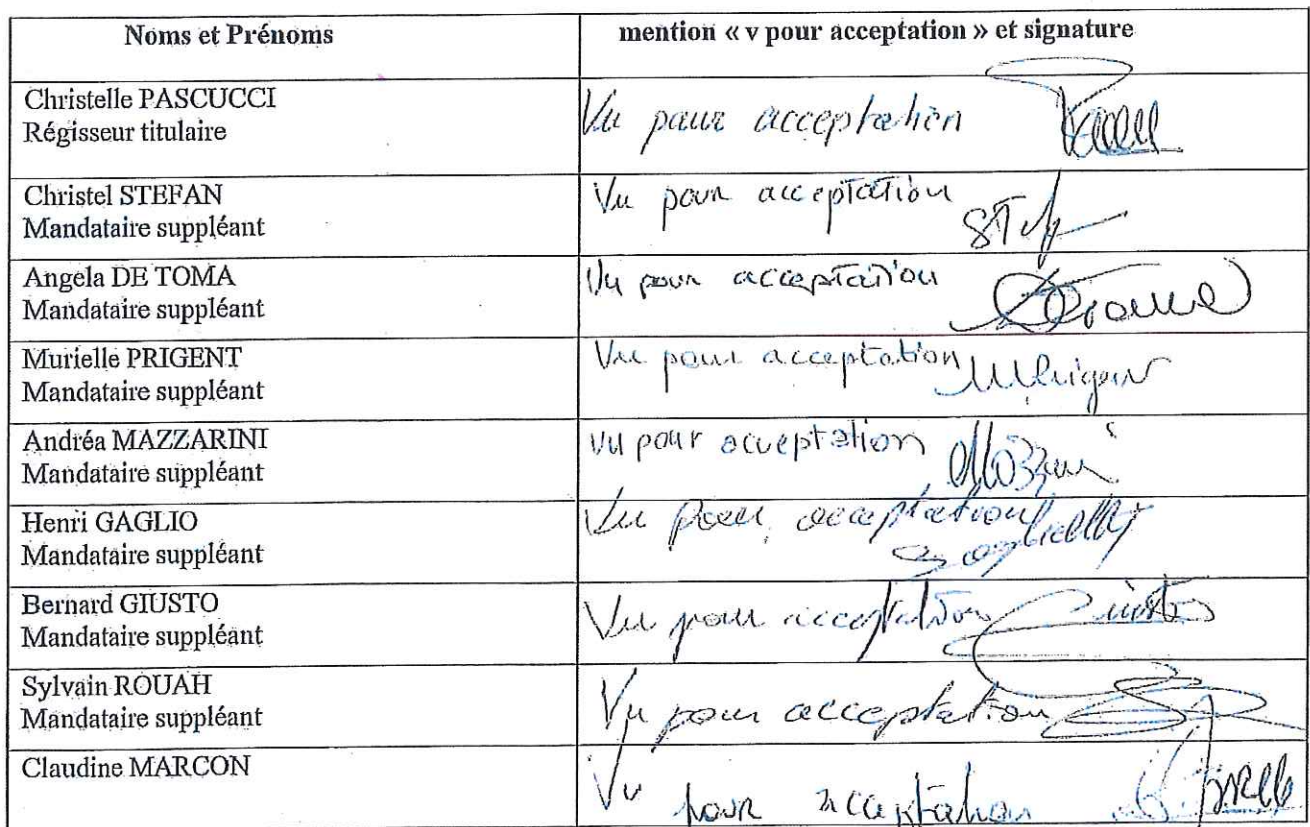 Noms et Prénoms
mention « v pour acceptation » et signature
Christelle PASCUCCI
Régisseur titulaire
Vu pour acceptation
Christel STEFAN
Mandataire suppléant
Vu pour acceptation
Angela DE TOMA
Mandataire suppléant
Vu pour acceptation
Murielle PRIGENT
Mandataire suppléant
Vu pour acceptation
Andréa MAZZARINI
Mandataire suppléant
Vu pour acceptation
Henri GAGLIO
Mandataire suppléant
Vu pour acceptation
Bernard GIUSTO
Mandataire suppléant
Vu pour acceptation
Sylvain ROUAH
Mandataire suppléant
Vu pour acceptation
Claudine MARCON
Vu pour acceptation